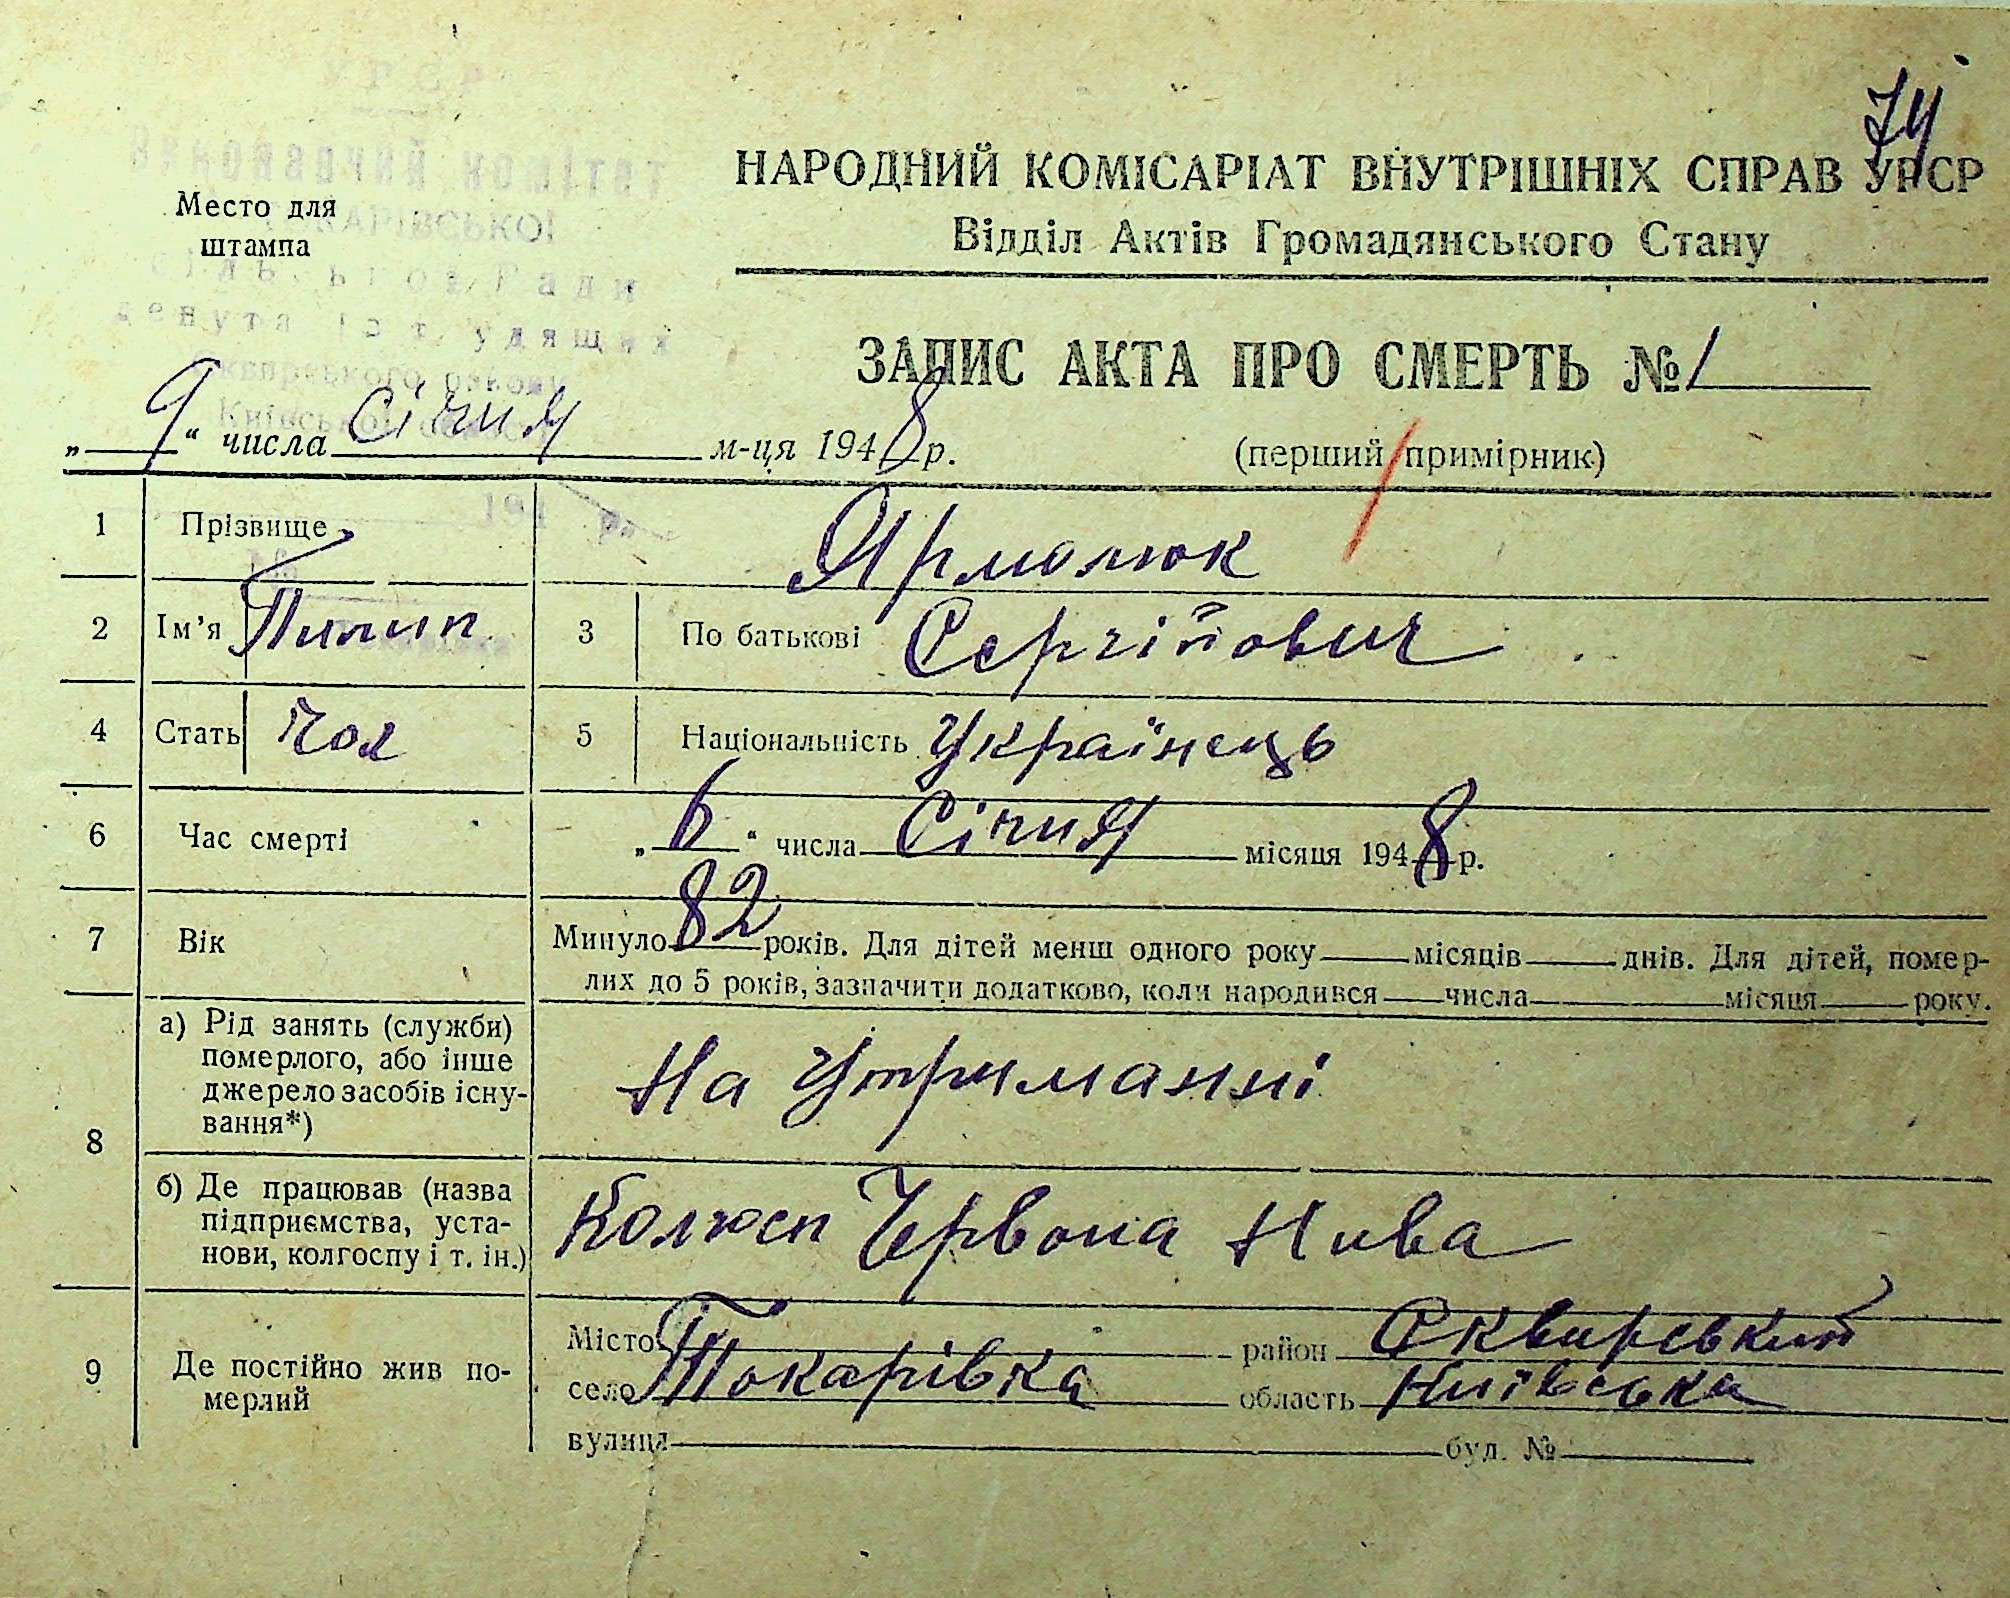 74
УРСР
Виконавчий комітет
ТОКАРІВСЬКОЇ
сільської Ради
депутатів трудящих
Сквирського району
Київської області
Место для
штампа
НАРОДНИЙ КОМІСАРІАТ ВНУТРІШНІХ СПРАВ УРСР
Відділ Актів Громадянського Стану
ЗАПИС АКТА ПРО СМЕРТЬ № 1
„ 9 “ числа Січня м-ця 1948 р.
(перший примірник)
1 Прізвище Ярмолюк
2 Ім’я Пилип 3 По батькові Сергійович
4 Стать чол 5 Національність Українець
6 Час смерті „ 6 “ числа Січня місяця 1948 р.
7 Вік Минуло 82 років. Для дітей менш одного року місяців днів. Для дітей, помер-
лих до 5 років, зазначити додатково, коли народився числа місяця року.
8 а) Рід занять (служби)
померлого, або інше
джерело засобів існу-
вання*)
На утриманні
б) Де працював (назва
підприємства, уста-
нови, колгоспу і т. ін.)
Червона Нива
9 Де постійно жив по-
мерлий
Місто район Сквирський
село Токарівка область Київська
вулиця буд. №